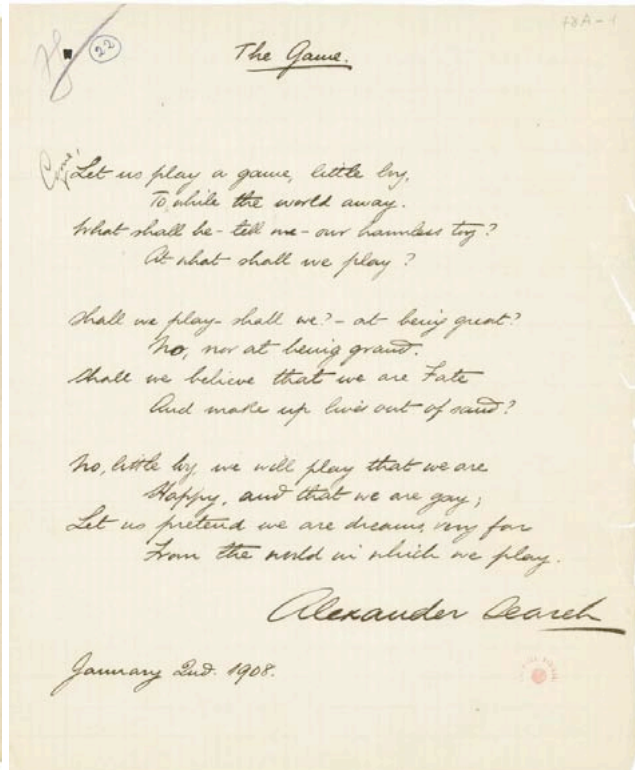 78A-1
22
The Game.
Come,
Let us play a game, little boy,
To while the world away.
What shall be - tell me - our harmless toy?
At what shall we play?
Shall we play - shall we? - at being great?
No, nor at being grand.
Shall we believe that we are Fate
And make up lives out of sand?
No, little boy, we will play that we are
Happy, and that we are gay;
Let us pretend we are dreams, very far
From the world in which we play.
Alexander Search
January 2nd. 1908.